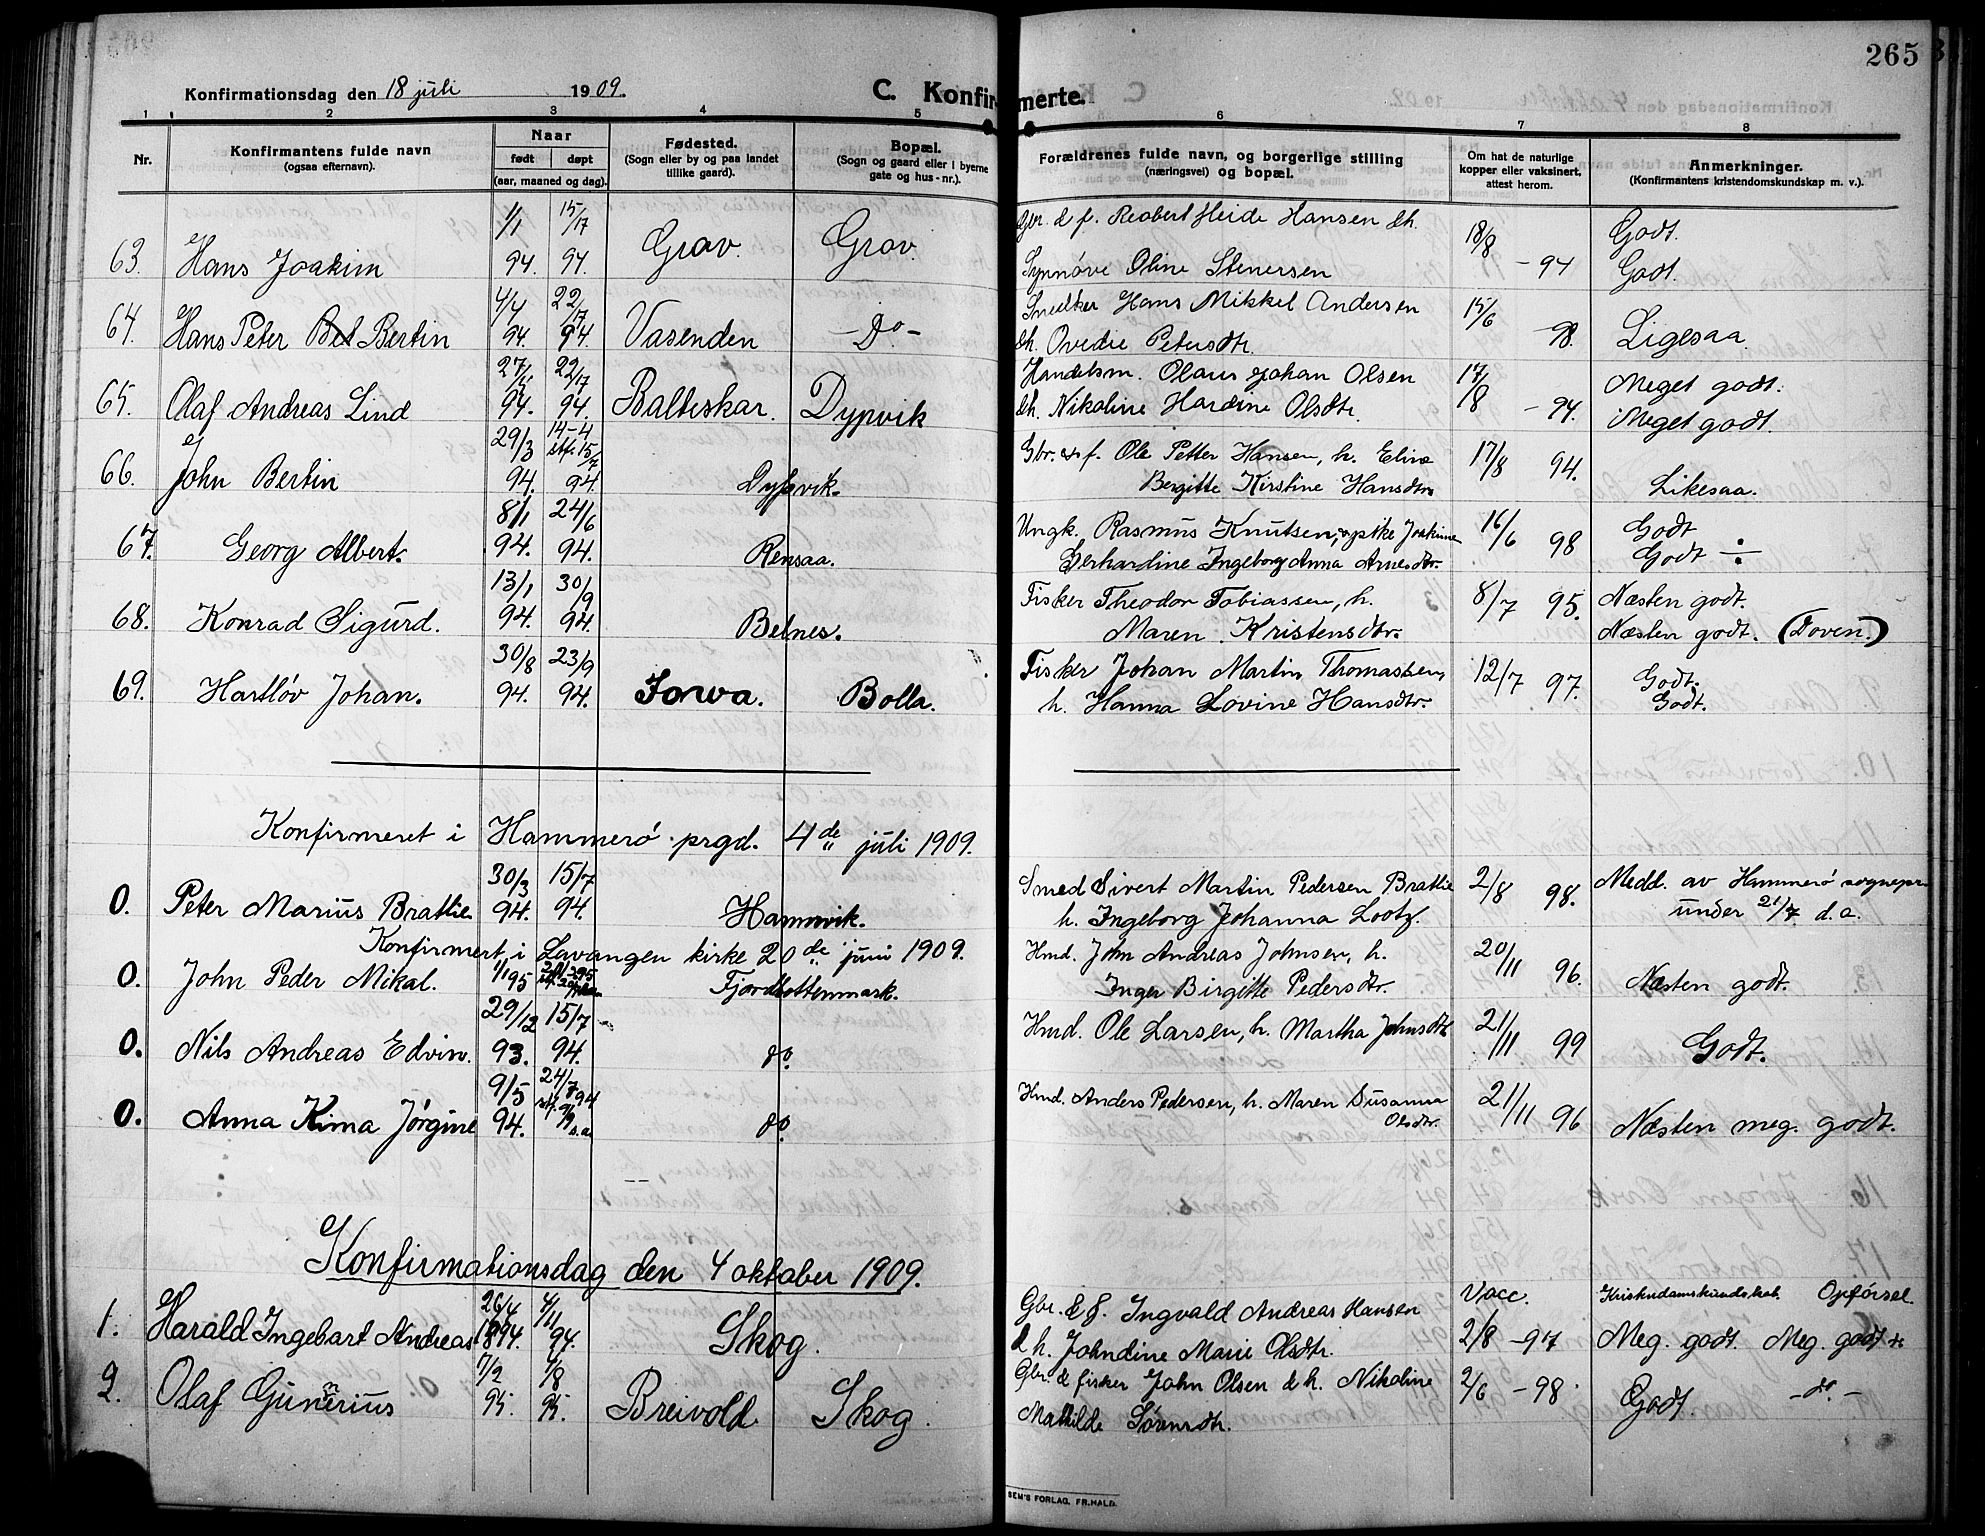 265
Konfirmationsdag den 18 juli 1909. C. Konfirmerte.
1 2 3 4 5 6 7 8
Nr. Konfirmantens fulde navn (ogsaa efternavn). Naar født døpt (aar, maaned og dag). Fødested. (Sogn eller by og paa landet tillike gaard). Bopæl. (Sogn og gaard eller i byerne gate og hus-nr.). Forældrenes fulde navn, og borgerlige stilling (næringsvei) og bopæl. Om hat de naturlige kopper eller vaksinert, attest herom. Anmerkninger. (Konfirmantens kristendomskundskap m. v.).
1/1 15/17 Gbr. & f. Reabert Heide Hansen &h. 18/8 Godt.
63. Hans Joakim 94. 94. Grav. Grov. Synnøve Oline Stenersen - 94 Godt.
4/4 22/17 Snedker Hans Mikkel Andersen 15/6
64. Hans Peter Bertin 94. 94. Vasenden - Do - &h. Ovedie Petersdtr. 98. Ligesaa.
22/17 Handelsm. Olaus Johan Olsen 17/8 Meget godt.
65. Olaf Andreas Lind 94. 94. Balteskar. Dypvik &h. Nikoline Hardine Olsdtr. - 94. Meget godt.
29/3 14-4 stf. 15/7 Gbr. og f. Ole Petter Hansen, h. Eline 17/8 94.
66. John Bertin 94. 94 Dypvik. Bergitte Kirstine Hansdtr. Likesaa.
8/1 24/6 Ungk. Rasmus Knutsen, pike Joakime 16/6 98 Godt
67. Georg Albert. 94. 94. Rensaa. Gerhardine Ingeborg Anna Arnesdtr. Godt ÷
13/1 30/9 Fisker Theodor Tobiassen, h. 8/7 95. Næsten godt.
68. Konrad Sigurd. 94. 94. Belnes. Maren Kristensdtr. Næsten godt. (Doven.)
30/8 23/9 Fisker Johan Martin Thomassen, 12/7 97. Godt.
69. Hartløv Johan. 94. 94. Forva. Bolla. h. Hanna Lovine Hansdtr. Godt.
Konfirmeret i Hammerø prgd. 4de juli 1909.
30/3 15/7 Smed Sivert Martin Pedersen Brattlie 2/8 98. Medd. av Hammerø sognepr.
0. Peter Marius Brattlie 94. 94. Hamnvik. h. Ingeborg Johanna Lootz. under 21/7 d.a.
Konfirmert i Lavangen kirke 20de juni 1909.
0. John Peder Mikal. 1/1 95 Fjordbottenmark. Hmd. John Andreas Johnsen, h. 20/11 96.
Inger Birgitte Pedersdtr. Næsten godt.
29/12 15/7 Hmd. Ole Larsen, h. Martha Johnsdtr 21/11 99
0. Nils Andreas Edvin. 93. 94. do. Godt.
9/5 24/7 94 Hmd. Anders Pedersen, h. Maren Susanna Olsdtr. 21/11 96
0. Anna Kima Jørgine 94. do. Næsten meg. godt.
Konfirmationsdag den 4 oktober 1909.
26/4 4/11 Gbr. & f. Ingvald Andreas Hansen Vacc. Kristendamskundskab. Opførsel.
1. Harald Ingebart Andreas 1894. 94. Skog. & h. Johndine Marie Olsdtr. 2/8 - 97 Meg. godt. Meg. godt
7/2 4/8 Gbr. & fisker John Olsen & h. Nikoline 2/6 - 98. Godt. - do -
2. Olaf Gunerius 95. 95. Breivold Skog. Mathilde Sørensdtr.
SEM'S FORLAG, FR.HALD.